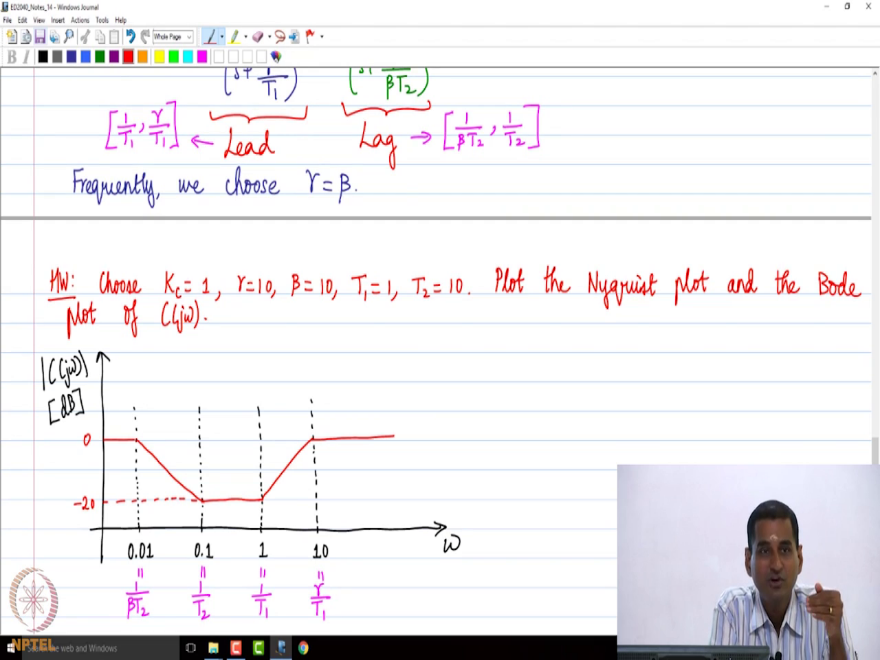 ED2040_Notes_14 - Windows Journal
File Edit View Insert Actions Tools Help
Whole Page
B I
(s+ 1/T₁) (s+ 1/βT₂)
[1/T₁, γ/T₁] ← Lead Lag → [1/βT₂, 1/T₂]
Frequently, we choose γ=β.
HW: Choose Kc=1, γ=10, β=10, T₁=1, T₂=10. Plot the Nyquist plot and the Bode
plot of C(jω).
|C(jω)|
[dB]
0
-20
0.01 0.1 1 10 ω
= = = =
1/βT₂ 1/T₂ 1/T₁ γ/T₁
NPTEL
the web and Windows